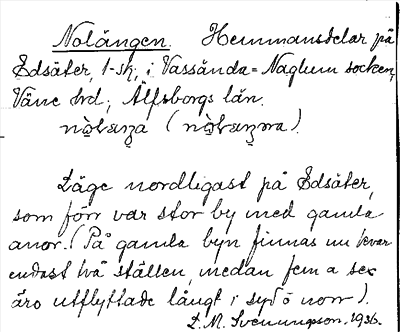 Nolängen. Hemmansdelar på
Edsäter, 1-sk, i Vassända-Naglum socken,
Väne hrd, Älfsborgs län.

Läge nordligast på Edsäter,
som förr var stor by med gamla
anor. (På gamla byn finnas nu kvar
endast två ställen, medan fem a sex
äro utflyttade långt i syd ö norr).
L. M. Svenungson. 1936.